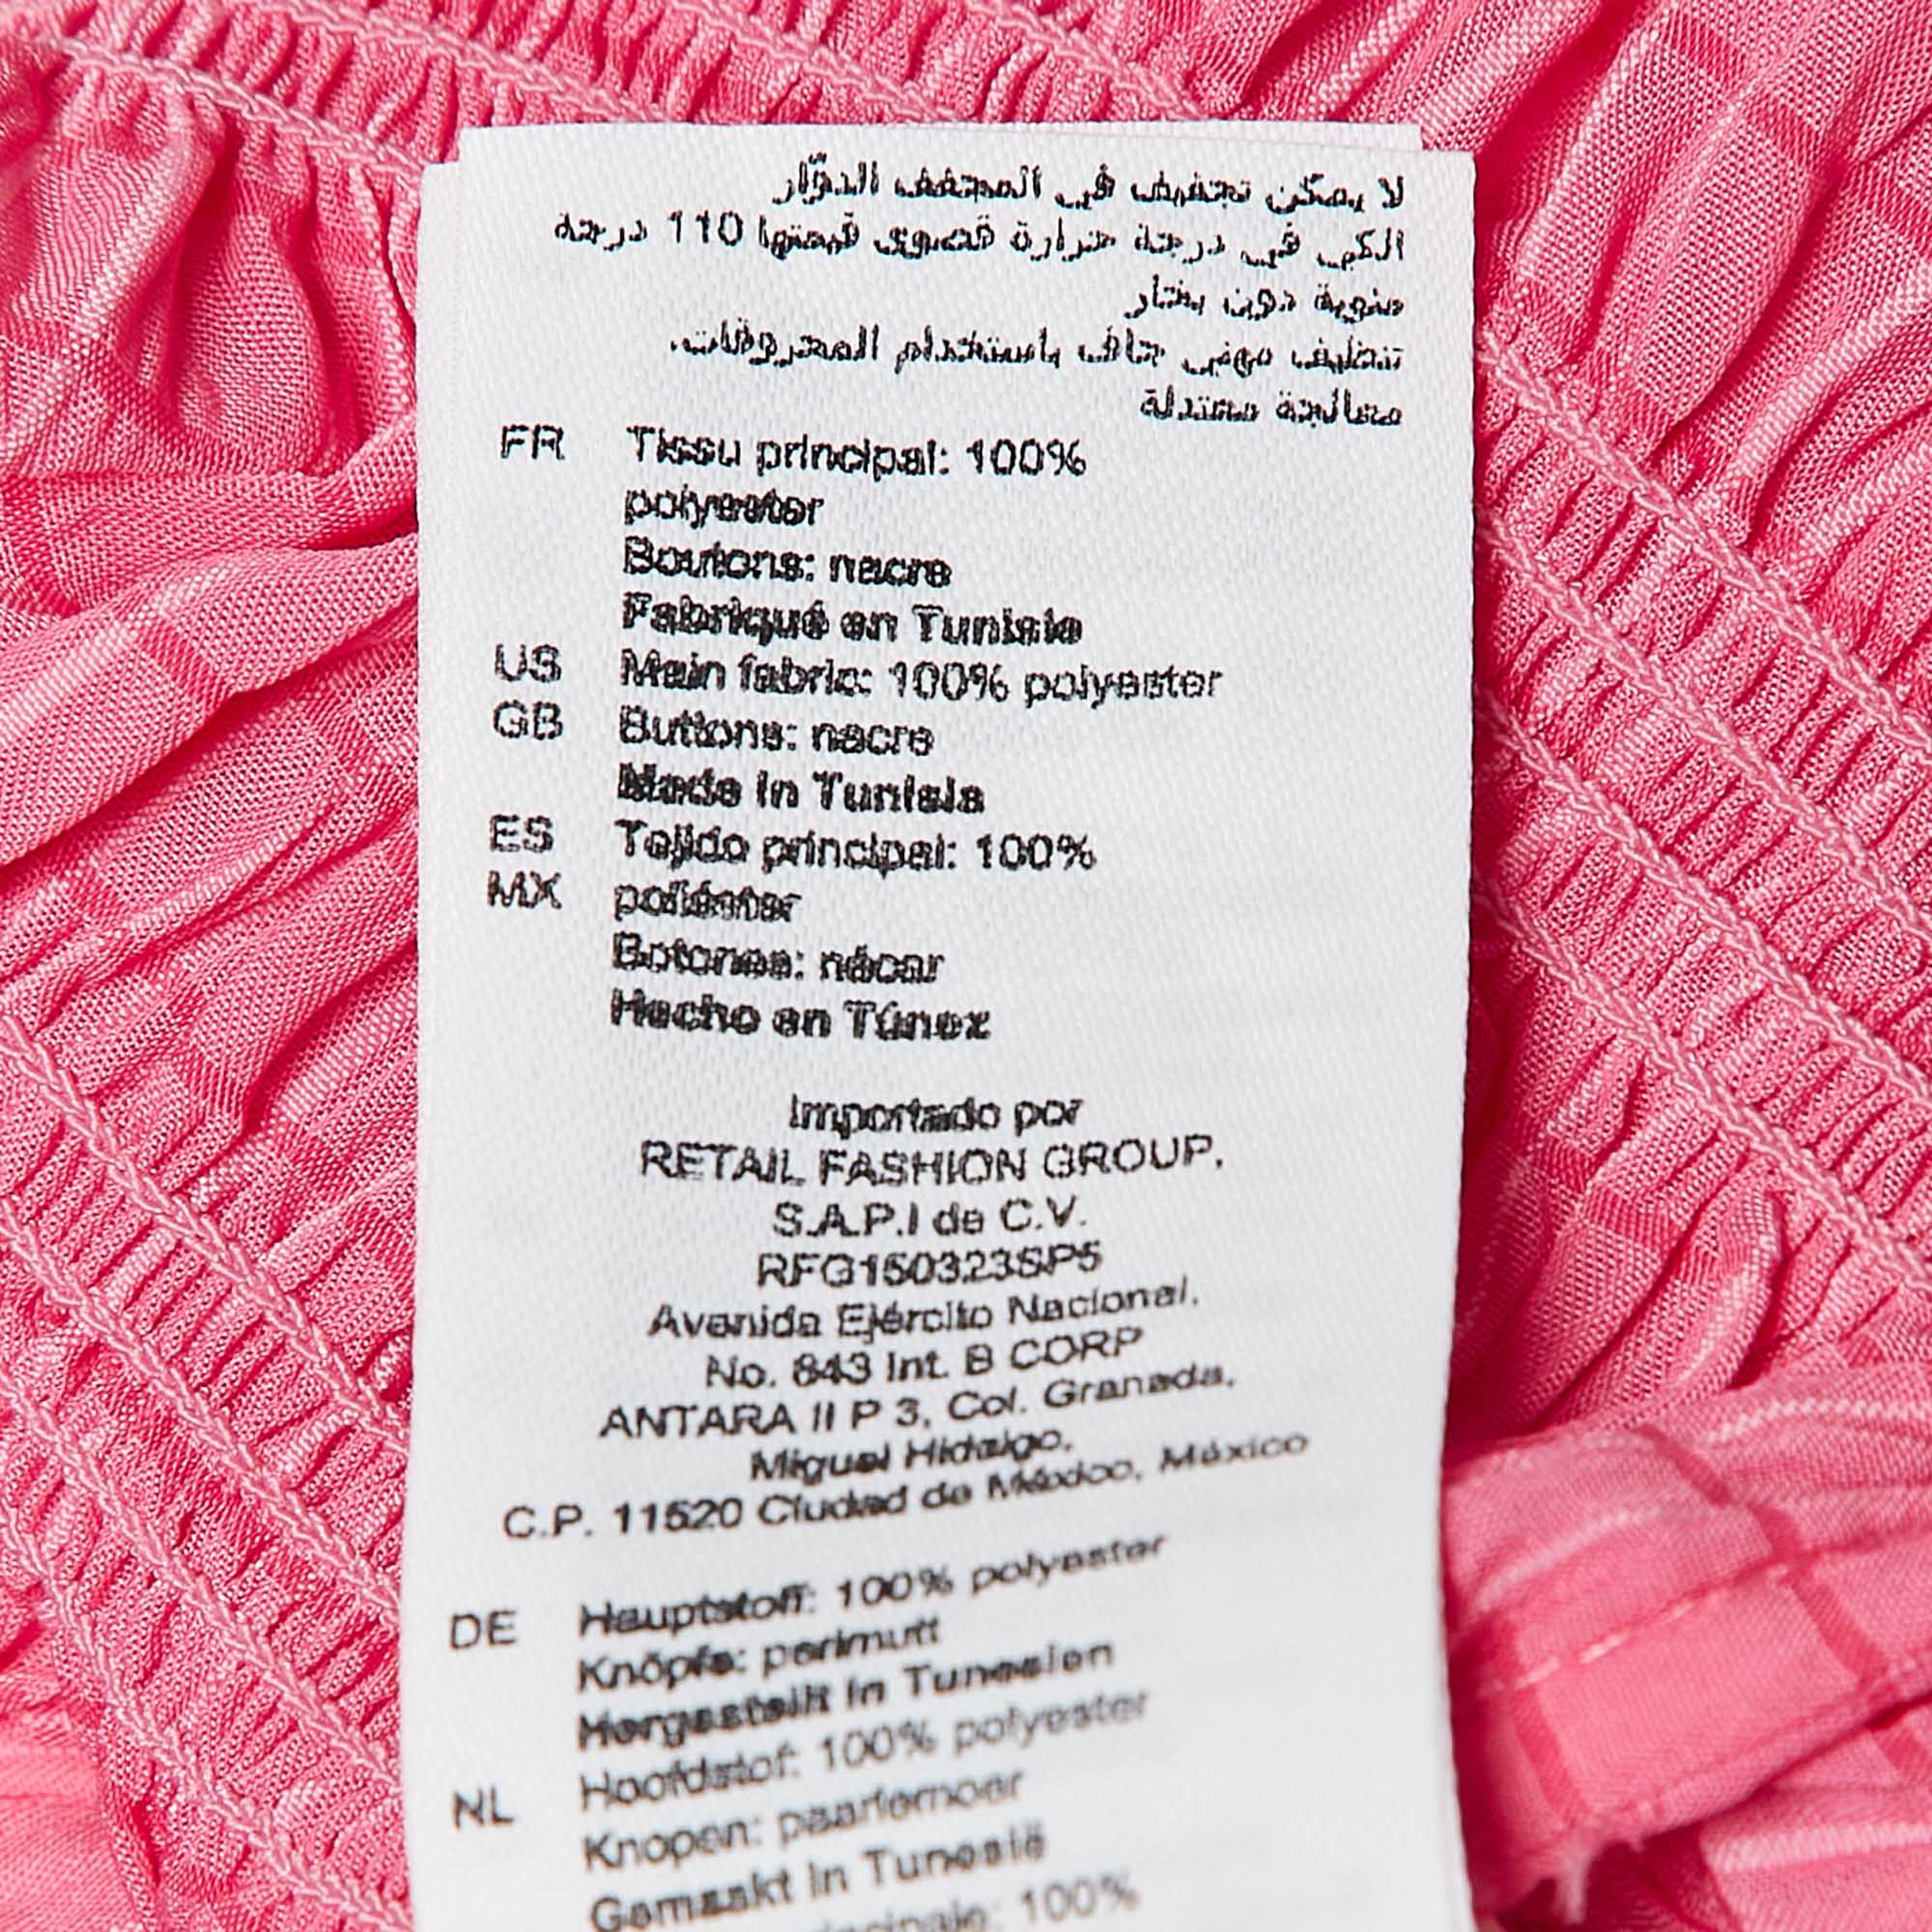 لا يمكن تجفيف في المجفف الدوّار
الكي في درجة حرارة قصوى قيمتها 110 درجة
مئوية دون بخار
تنظيف مهني جاف باستخدام المحروقات.
معالجة معتدلة
FR Tissu principal: 100%
polyester
Boutons: nacre
Fabriqué en Tunisie
US Main fabric: 100% polyester
GB Buttons: nacre
Made in Tunisia
ES Tejido principal: 100%
MX poliéster
Botones: nácar
Hecho en Túnez
Importado por
RETAIL FASHION GROUP,
S.A.P.I de C.V.
RFG150323SP5
Avenida Ejército Nacional,
No. 843 Int. B CORP
ANTARA II P 3, Col. Granada,
Miguel Hidalgo,
C.P. 11520 Ciudad de México, México
DE Hauptstoff: 100% polyester
Knöpfe: perlmutt
Hergestellt in Tunesien
NL Hoofdstof: 100% polyester
Knopen: paarlemoer
Gemaakt in Tunesië
100%